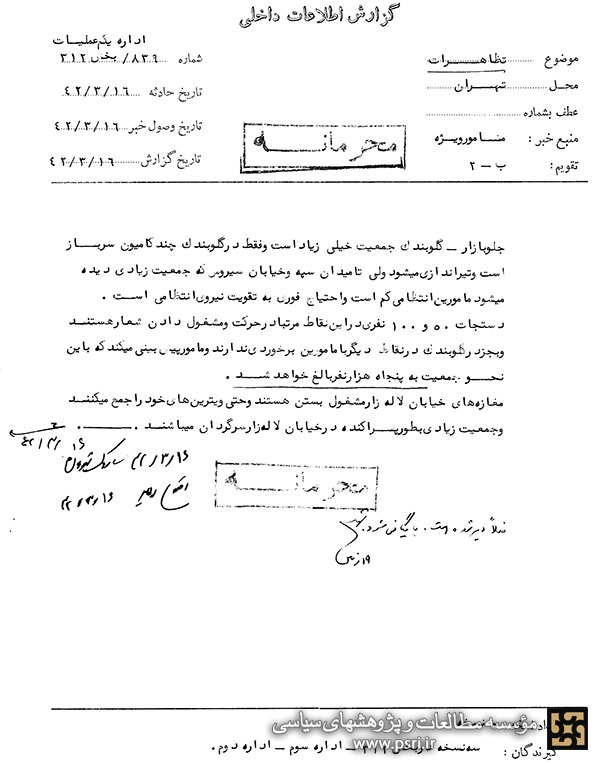 گزارش اطلاعات داخلی
اداره یکم عملیات
شماره ۸۳۹ / بخش ۳۱۲
موضوع تظاهرات
تاریخ حادثه ۴۲/۳/۱۶
محل تهران
عطف بشماره
تاریخ وصول خبر ۴۲/۳/۱۶
منبع خبر : مأمور ویژه
محرمانه
تاریخ گزارش ۴۲/۳/۱۶
تقویم : ب – ۲
جلو بازار – گلوبندك جمعیت خیلی زیاد است وفقط در گلوبندك چند كامیون سرباز
است وتیراندازی میشود ولی تا میدان سپه وخیابان سیروس كه جمعیت زیادی دیده
میشود مامورین انتظامی كم است واحتیاج فوری به تقویت نیروی انتظامی است .
دستجات ۵۰ و ۱۰۰ نفری در این نقاط مرتبا در حرکت ومشغول دادن شعار هستند
وبجز در گلوبندك در نقاط دیگر با مامورین برخوردی ندارند ومامور پیش بینی میکند که با این
نحو جمعیت به پنجاه هزار نفر بالغ خواهد شد .
مغازه های خیابان لاله زار مشغول بستن هستند وحتی ویترین های خود را جمع میکنند
وجمعیت زیادی بطور پراکنده در خیابان لاله زار سرگردان میباشند .
۴۲/۳/۱۶
۴۲/۳/۱۶
۴۲/۳/۱۶
محرمانه
فعلاً دیر شده است . بایگانی شود .
مؤسسه مطالعات و پژوهشهای سیاسی
www.psri.ir
گیرندگان : سه نسخه اداره سوم – اداره دوم .